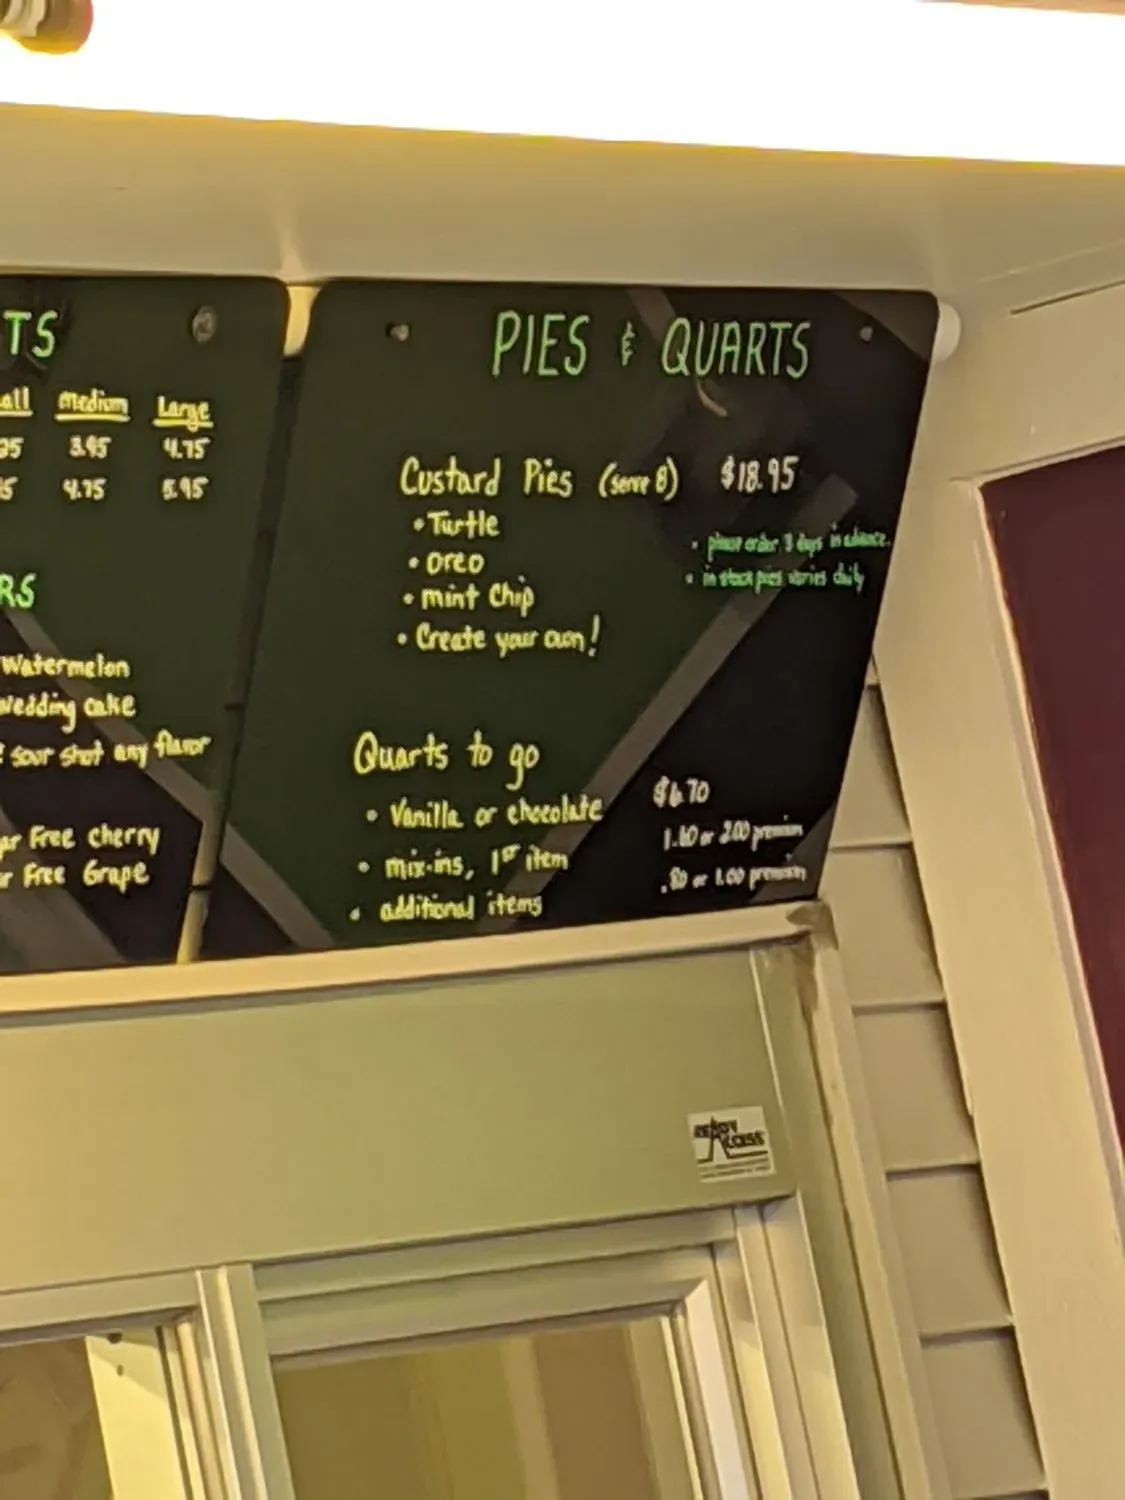 TS
Medium Large
3.95 4.75
4.75 5.95
RS
Watermelon
wedding cake
sour shot any flavor
Free cherry
Free Grape
PIES & QUARTS
Custard Pies (serve 8) $18.95
• Turtle
• oreo
• mint Chip
• Create your own!
• please order 3 days in advance.
• in stock pies varies daily
Quarts to go
• Vanilla or chocolate $6.70
• mix-ins, 1st item 1.60 or 2.00 premium
• additional items .80 or 1.00 premium
READY ACCESS